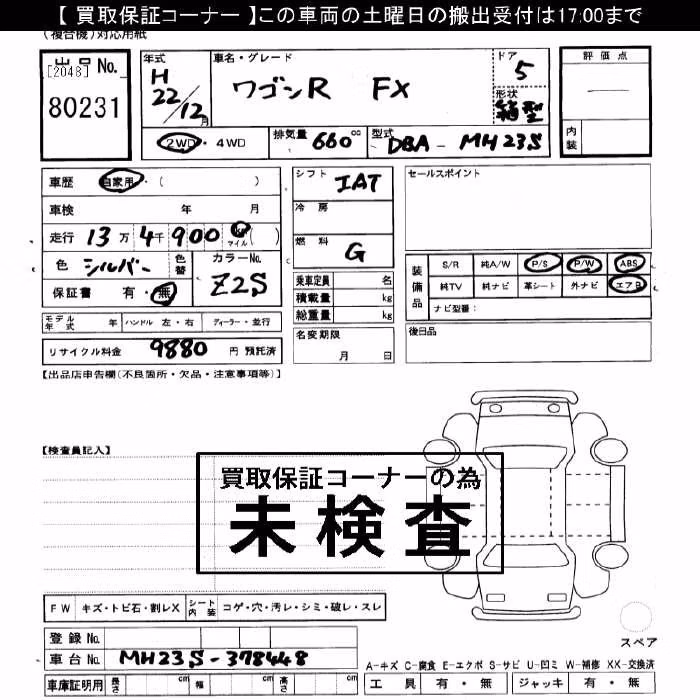 【 買取保証コーナー 】この車両の土曜日の搬出受付は17:00まで
(複合機)対応用紙
出品 No.
[2048]
80231
年式
H
22/12月
車名・グレード
ワゴンR FX
ドア
5
形状
箱型
評価点
内装
2WD・4WD
排気量 660 cc
型式 DBA - MH23S
車歴 自家用・( )
車検 年 月
走行 13万4千900 km マイル ( )
色 シルバー
色替
カラーNo.
Z2S
保証書 有・無
シフト IAT
冷房
燃料 G
乗車定員 名
積載量 kg
総重量 kg
セールスポイント
装備品
S/R 純A/W P/S P/W ABS
純TV 純ナビ 革シート 外ナビ エアB
ナビ型番:
モデル年式 年 ハンドル 左・右 ディーラー・並行
リサイクル料金 9880 円 預託済
名変期限
月 日
後日品
【出品店申告欄(不良箇所・欠品・注意事項等)】
【検査員記入】
買取保証コーナーの為
未検査
FW キズ・トビ石・割レX シート内装 コゲ・穴・汚レ・シミ・破レ・スレ
スペア
登録 No.
車台 No. MH23S-378448
車庫証明用 長さ cm 幅 cm 高さ cm
A-キズ C-腐食 E-エクボ S-サビ U-凹ミ W-補修 XX-交換済
工具 有・無 ジャッキ 有・無